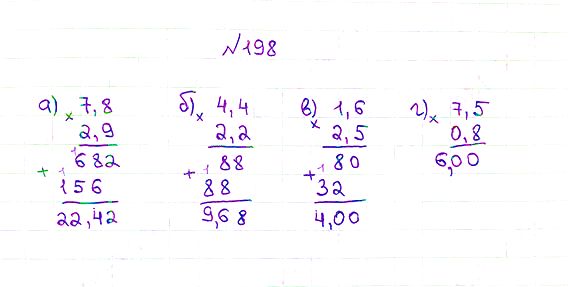 №198
а) 7,8 б) 4,4 в) 1,6 г) 7,5
× 2,9 × 2,2 × 2,5 × 0,8
682 88 80 6,00
+ 156 + 88 + 32
22,42 9,68 4,00